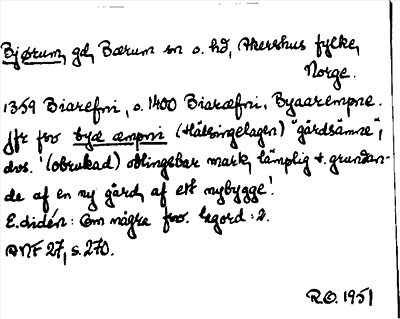 Bjørum, gd, Bærum sn o. hd, Akershus fylke,
Norge.
1359 Biarefni, o. 1400 Biaræfni, Byaarempne.
Jfr fsv byæ æmpni (Hälsingelagen) "gårdsämne",
dvs. '(obrukad) odlingsbar mark, lämplig t. grundan-
de af en ny gård, af ett nybygge'.
E. didén: Om några fsv. lagord: 2.
ANF 27, s. 270.
R.O. 1951